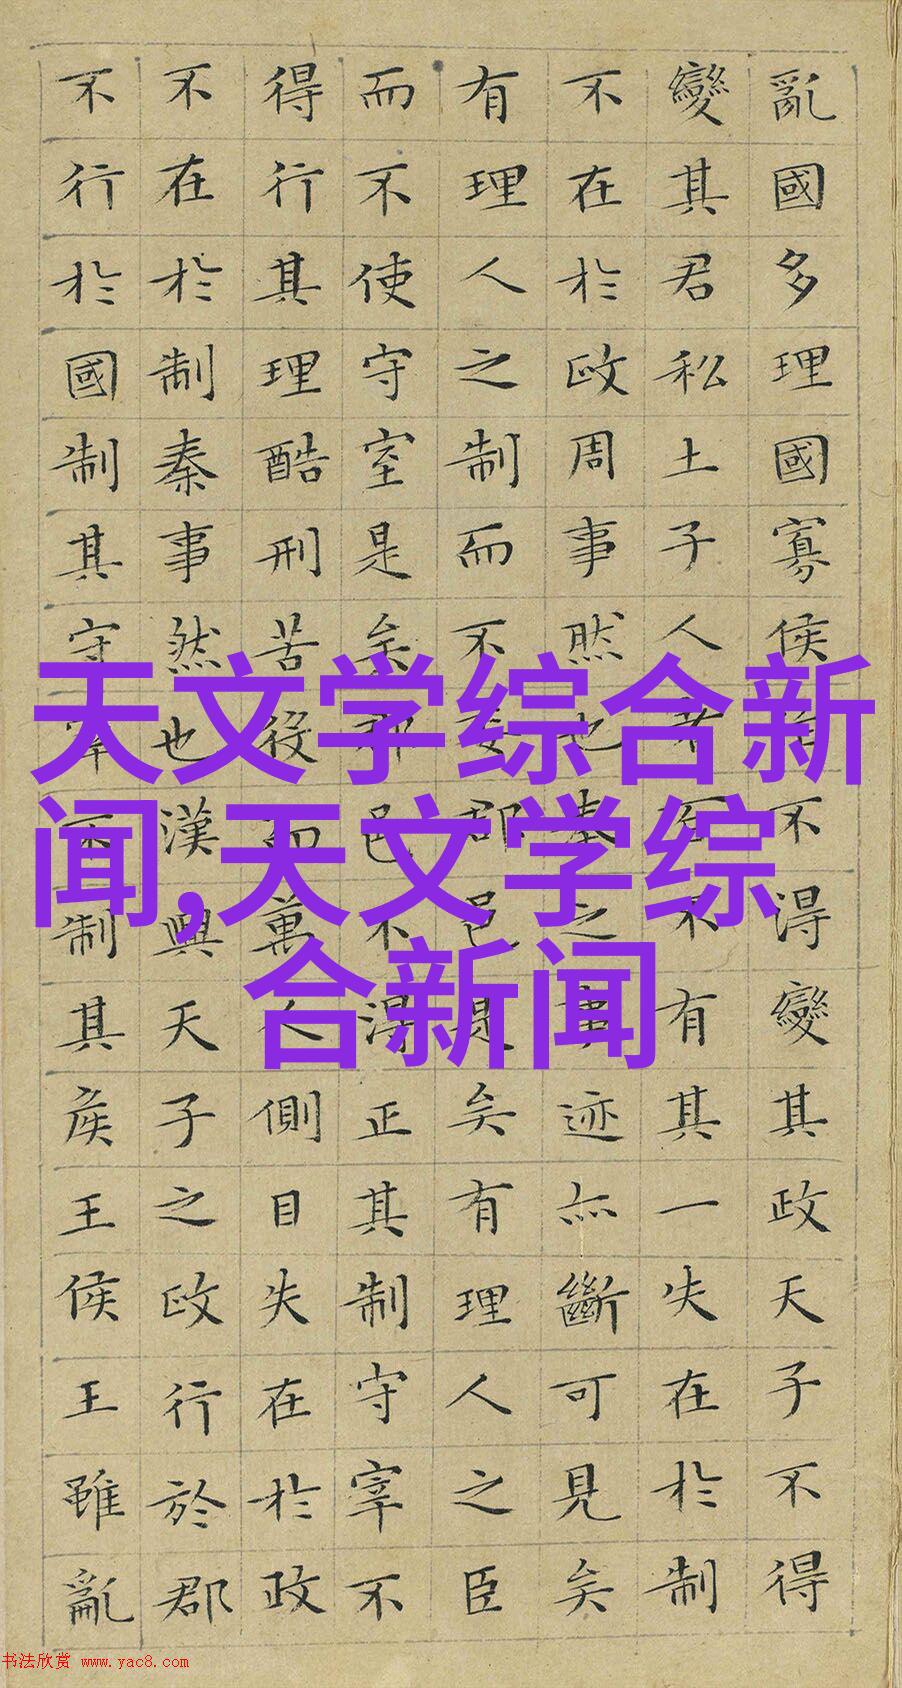 亂國多理國寡侯不得變其政天子不得
變其君私土子人者百不有其一失在於制
不在於政周事然也秦之事迹亦斷可見矣
有理人之制而不委郡邑是矣有理人之臣
而不使守宰是矣郡邑不得正其制守宰不
得行其理酷刑苦役而萬人側目失在於政
不在於制秦事然也漢興天子之政行於郡
不行於國制其守宰不制其侯王侯王雖亂
天文学综合新
闻,天文学综
合新闻
书法欣赏 www.yac8.com